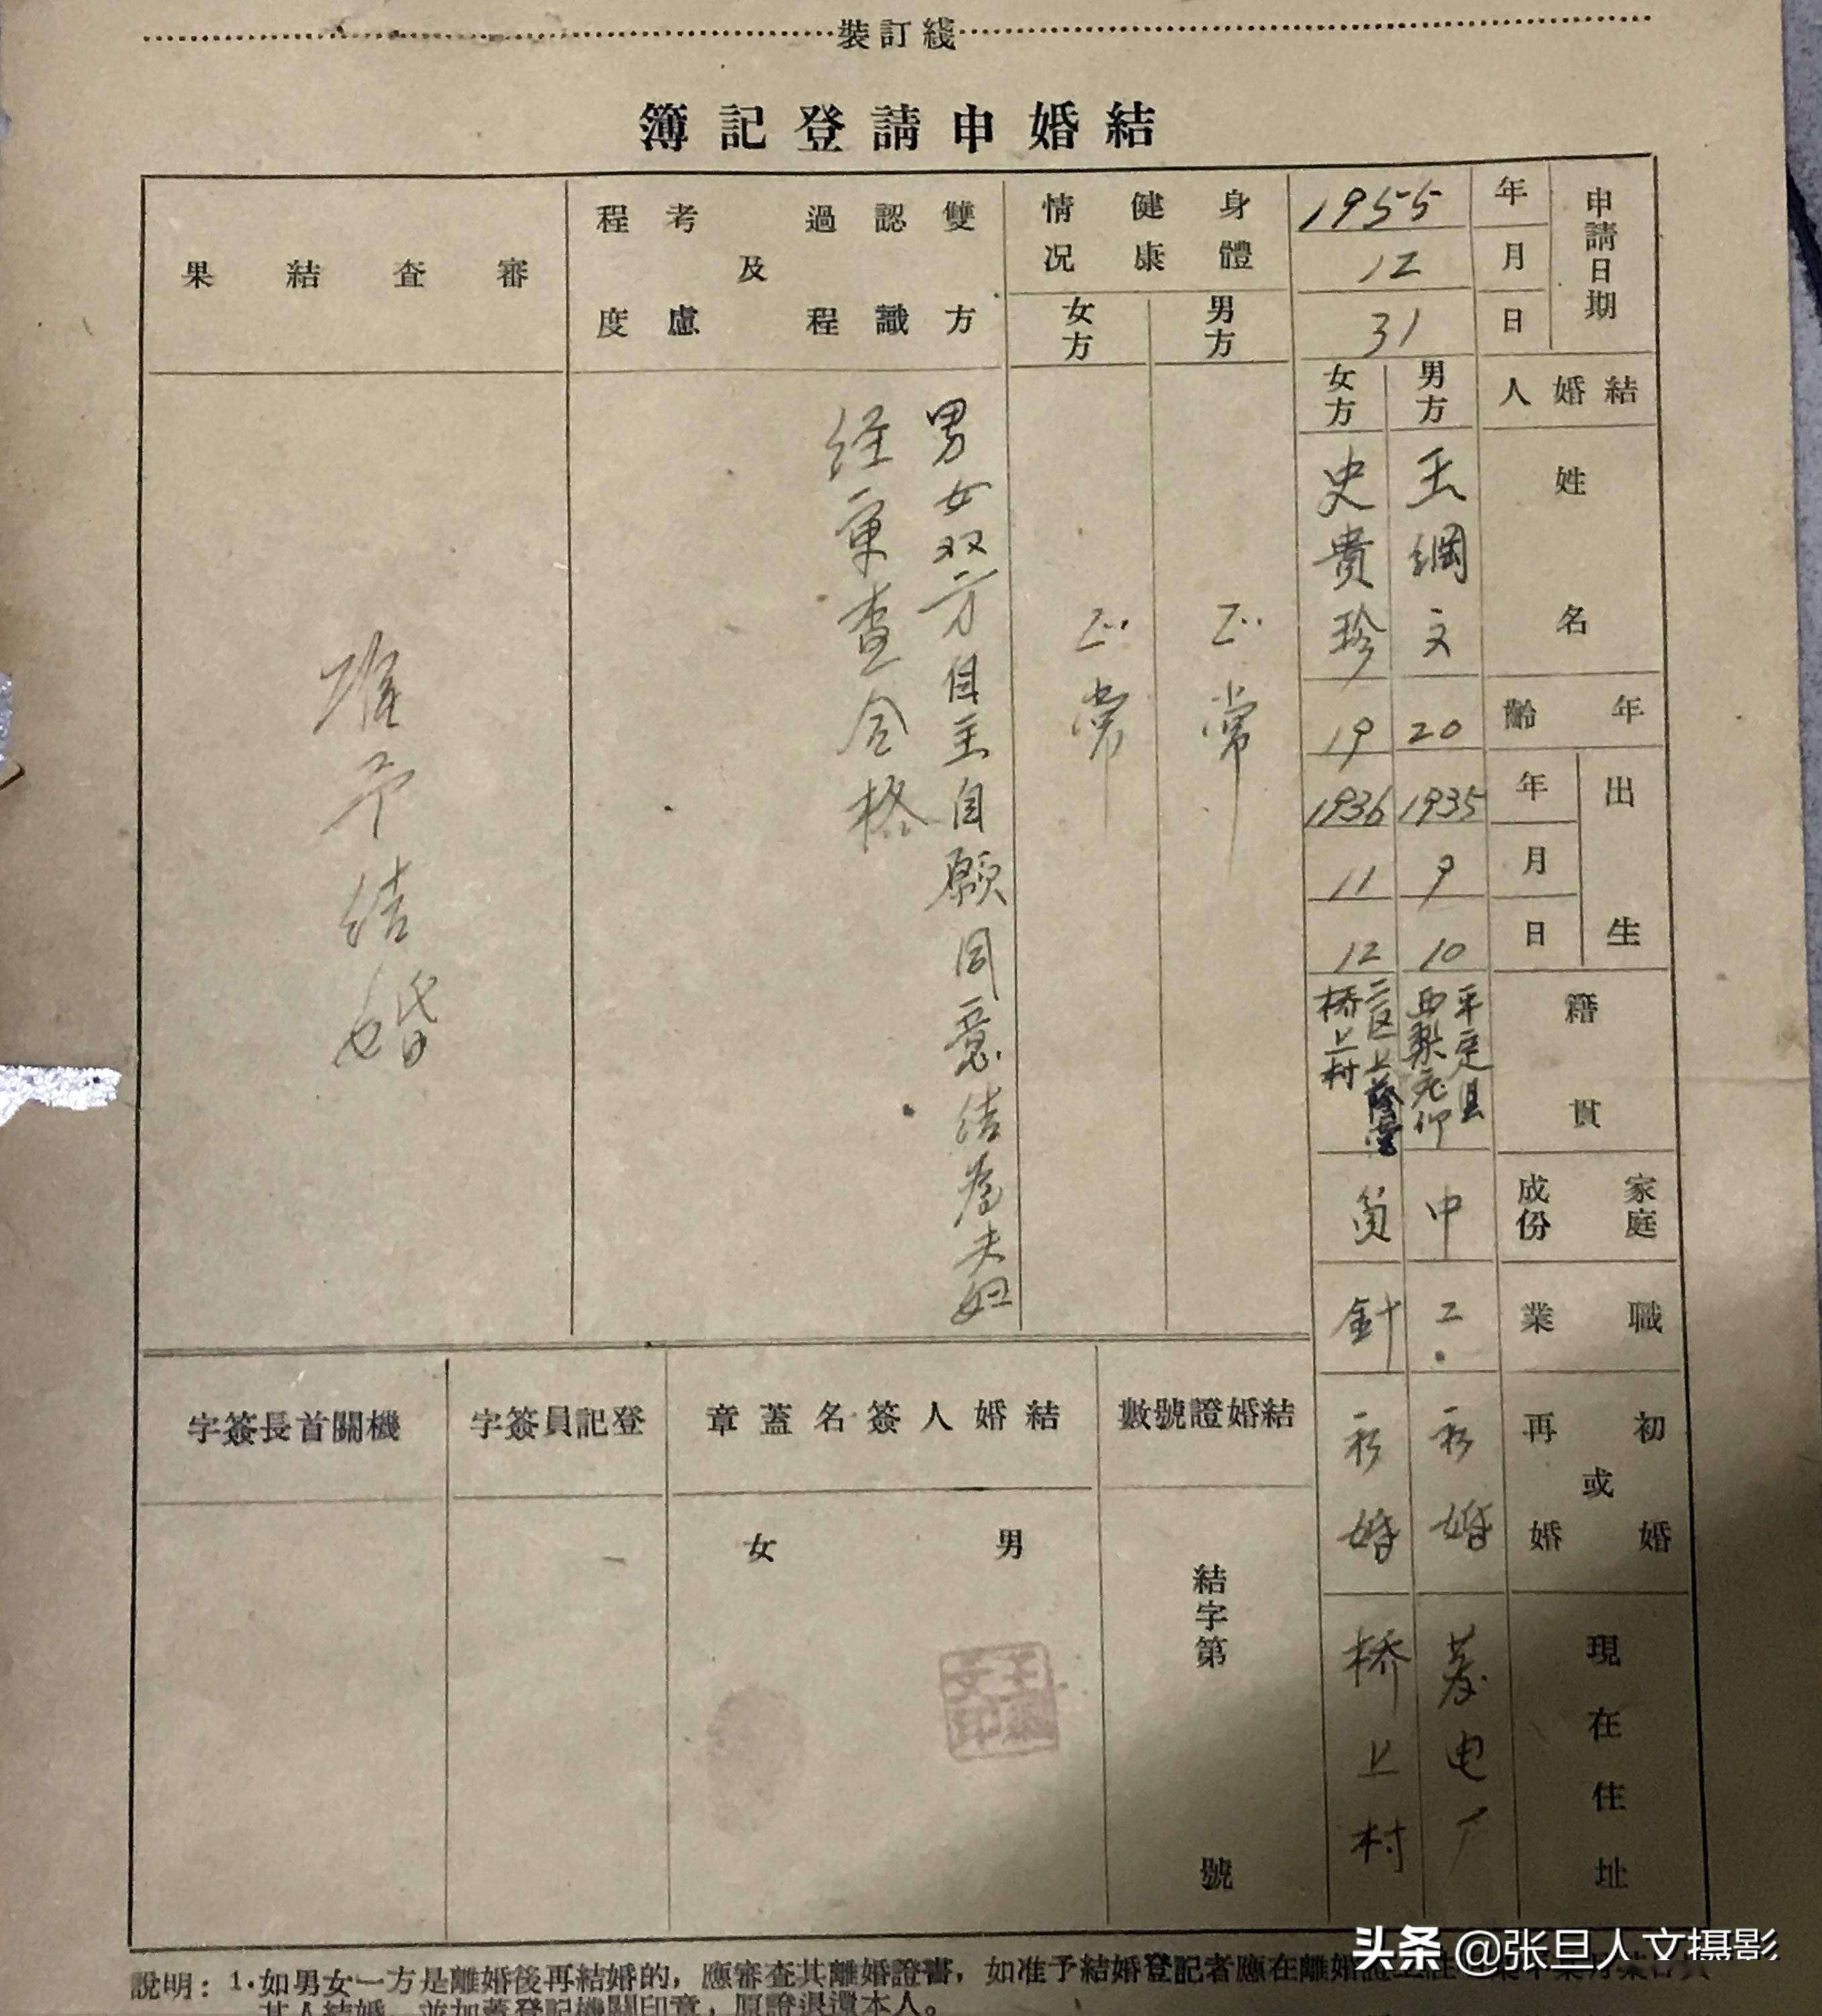 裝訂綫
結婚申請登記簿
申請日期
年
1955
月
12
日
31
結婚人
男方
女方
姓名
王綱文
史貴珍
年齡
20
19
出生
年
1935
1936
月
9
11
日
10
12
籍貫
平定县
二区上蔭营
桥上村
家庭成份
中
貧
職業
工
針
初婚或再婚
初婚
初婚
現在住址
发电厂
桥上村
身體健康情况
男方
女方
正常
正常
雙方認識過程及考慮程度
男女双方自主自願同意结為夫妇
经审查合格
審查結果
准予结婚
結婚證號數
結字第
號
結婚人簽名蓋章
男
女
王綱文印
登記員簽字
機關首長簽字
說明：1.如男女一方是離婚後再結婚的，應審查其離婚證書，如准予結婚登記者應在離婚證上註
其人結婚，並加蓋登記機關印章，原證退還本人。
头条 @张旦人文摄影